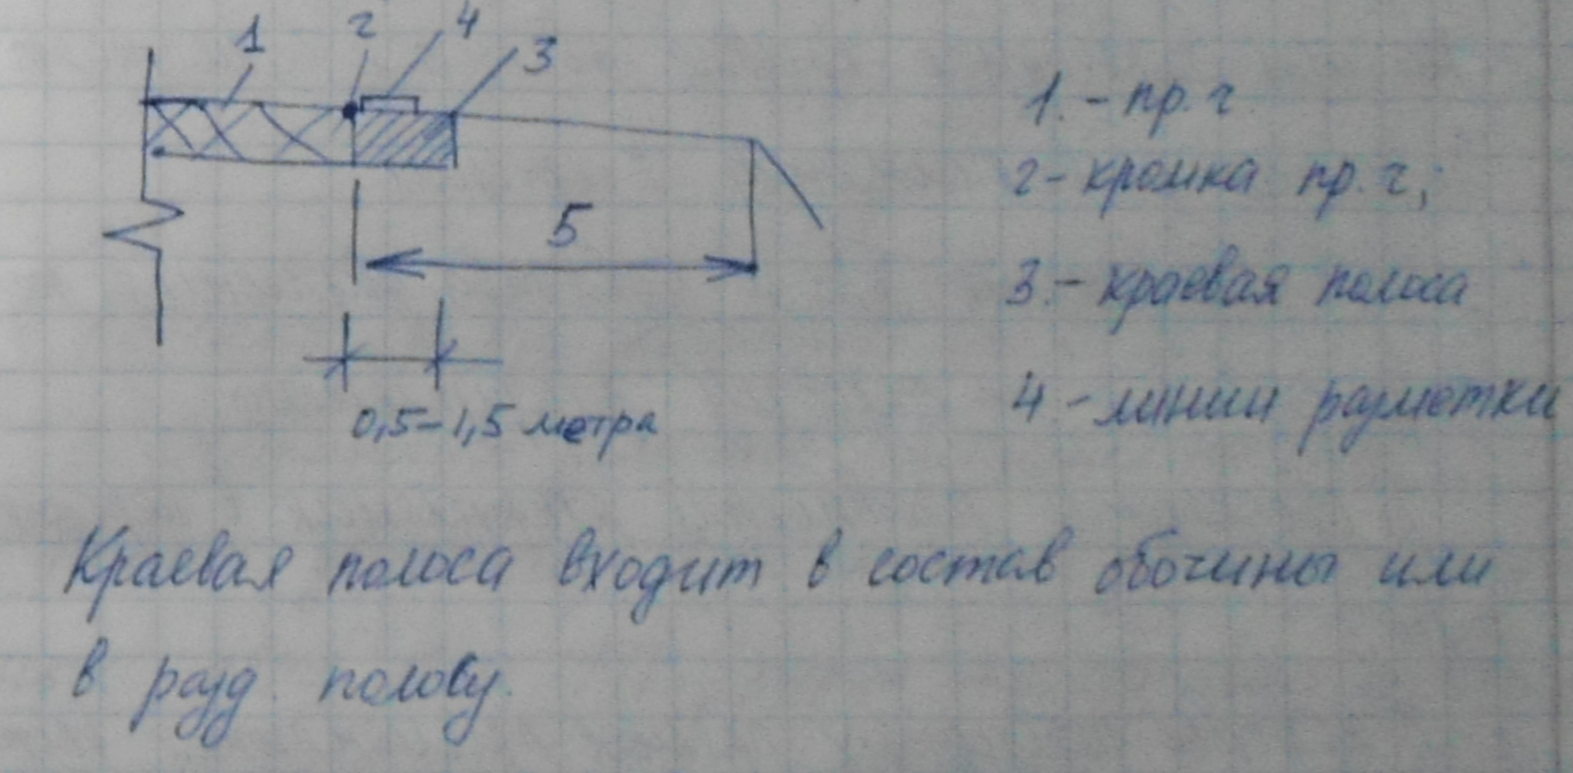 1 2 4 3
1. - пр. ч.
2 - кромка пр. ч;
3. - краевая полоса
5
4 - линии разметки
0,5-1,5 метра
Краевая полоса входит в состав обочины или
в разд. полосу.